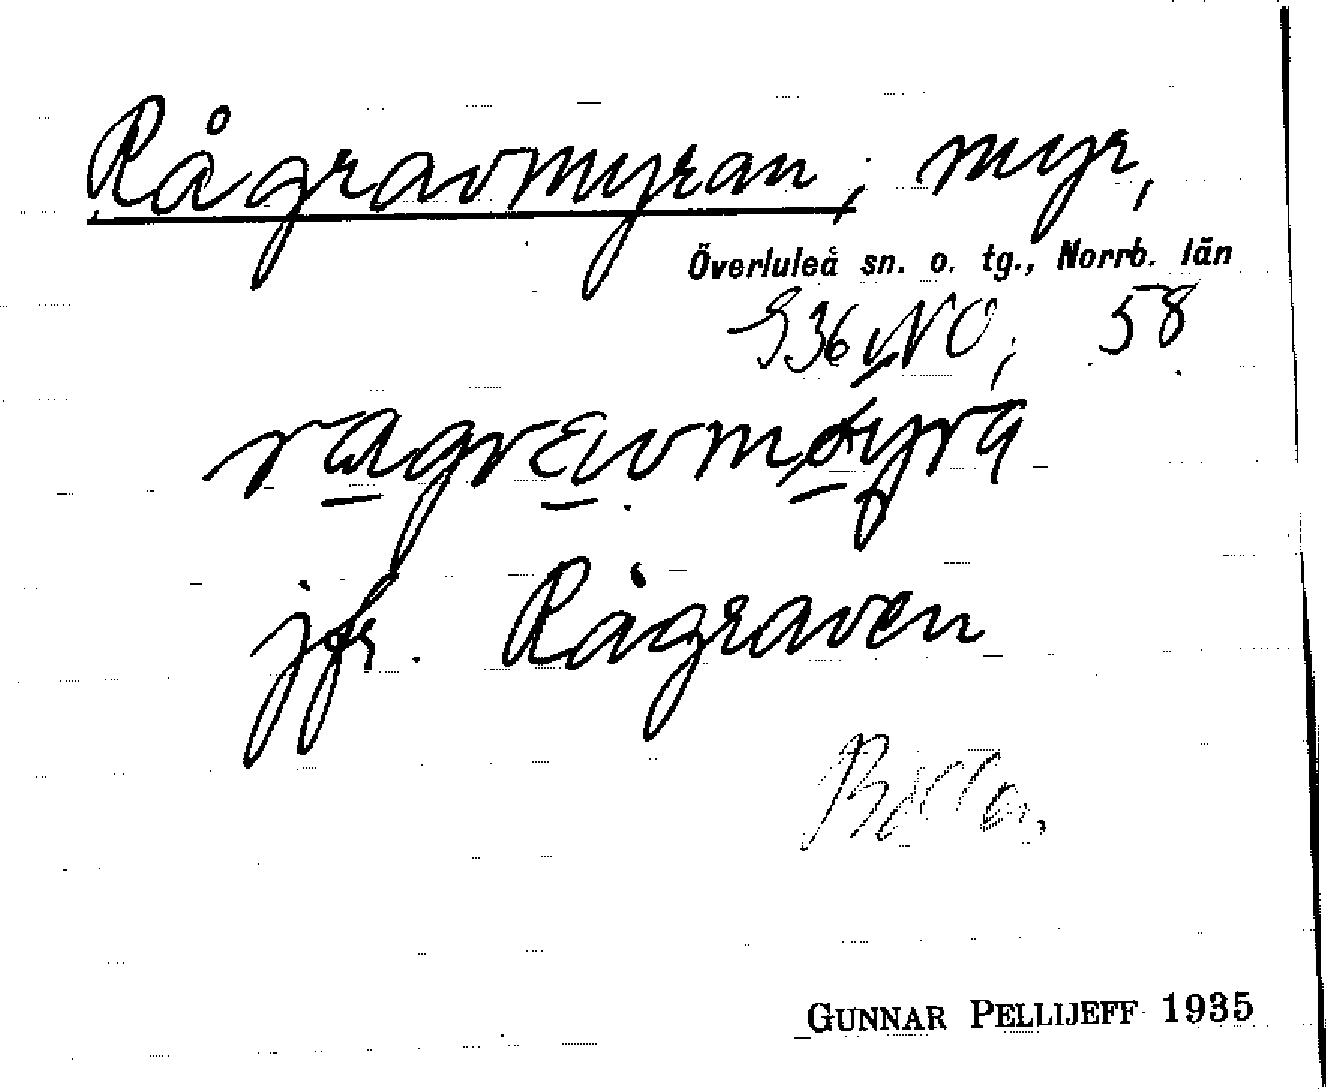 Rågravmyran, myr,
Överluleå sn. o. tg., Norrb. län
S36vNO, 58
jfr. Rågraven
GUNNAR PELLIJEFF 1935